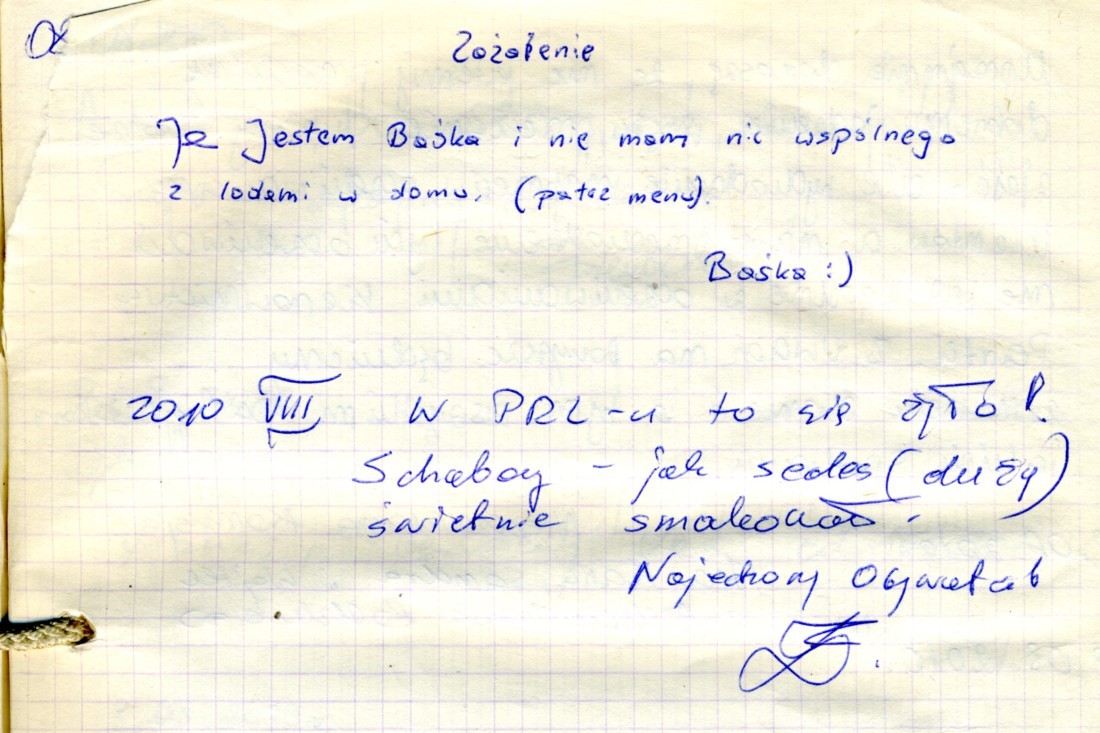 Zażalenie
Ja Jestem Baśka i nie mam nic wspólnego
z lodami w domu. (patrz menu).
Baśka :)
2010 VIII W PRL-u to się żyło!
Schaboy - jak sedes (duży)
świetnie smakował.
Najedzony Obywatel